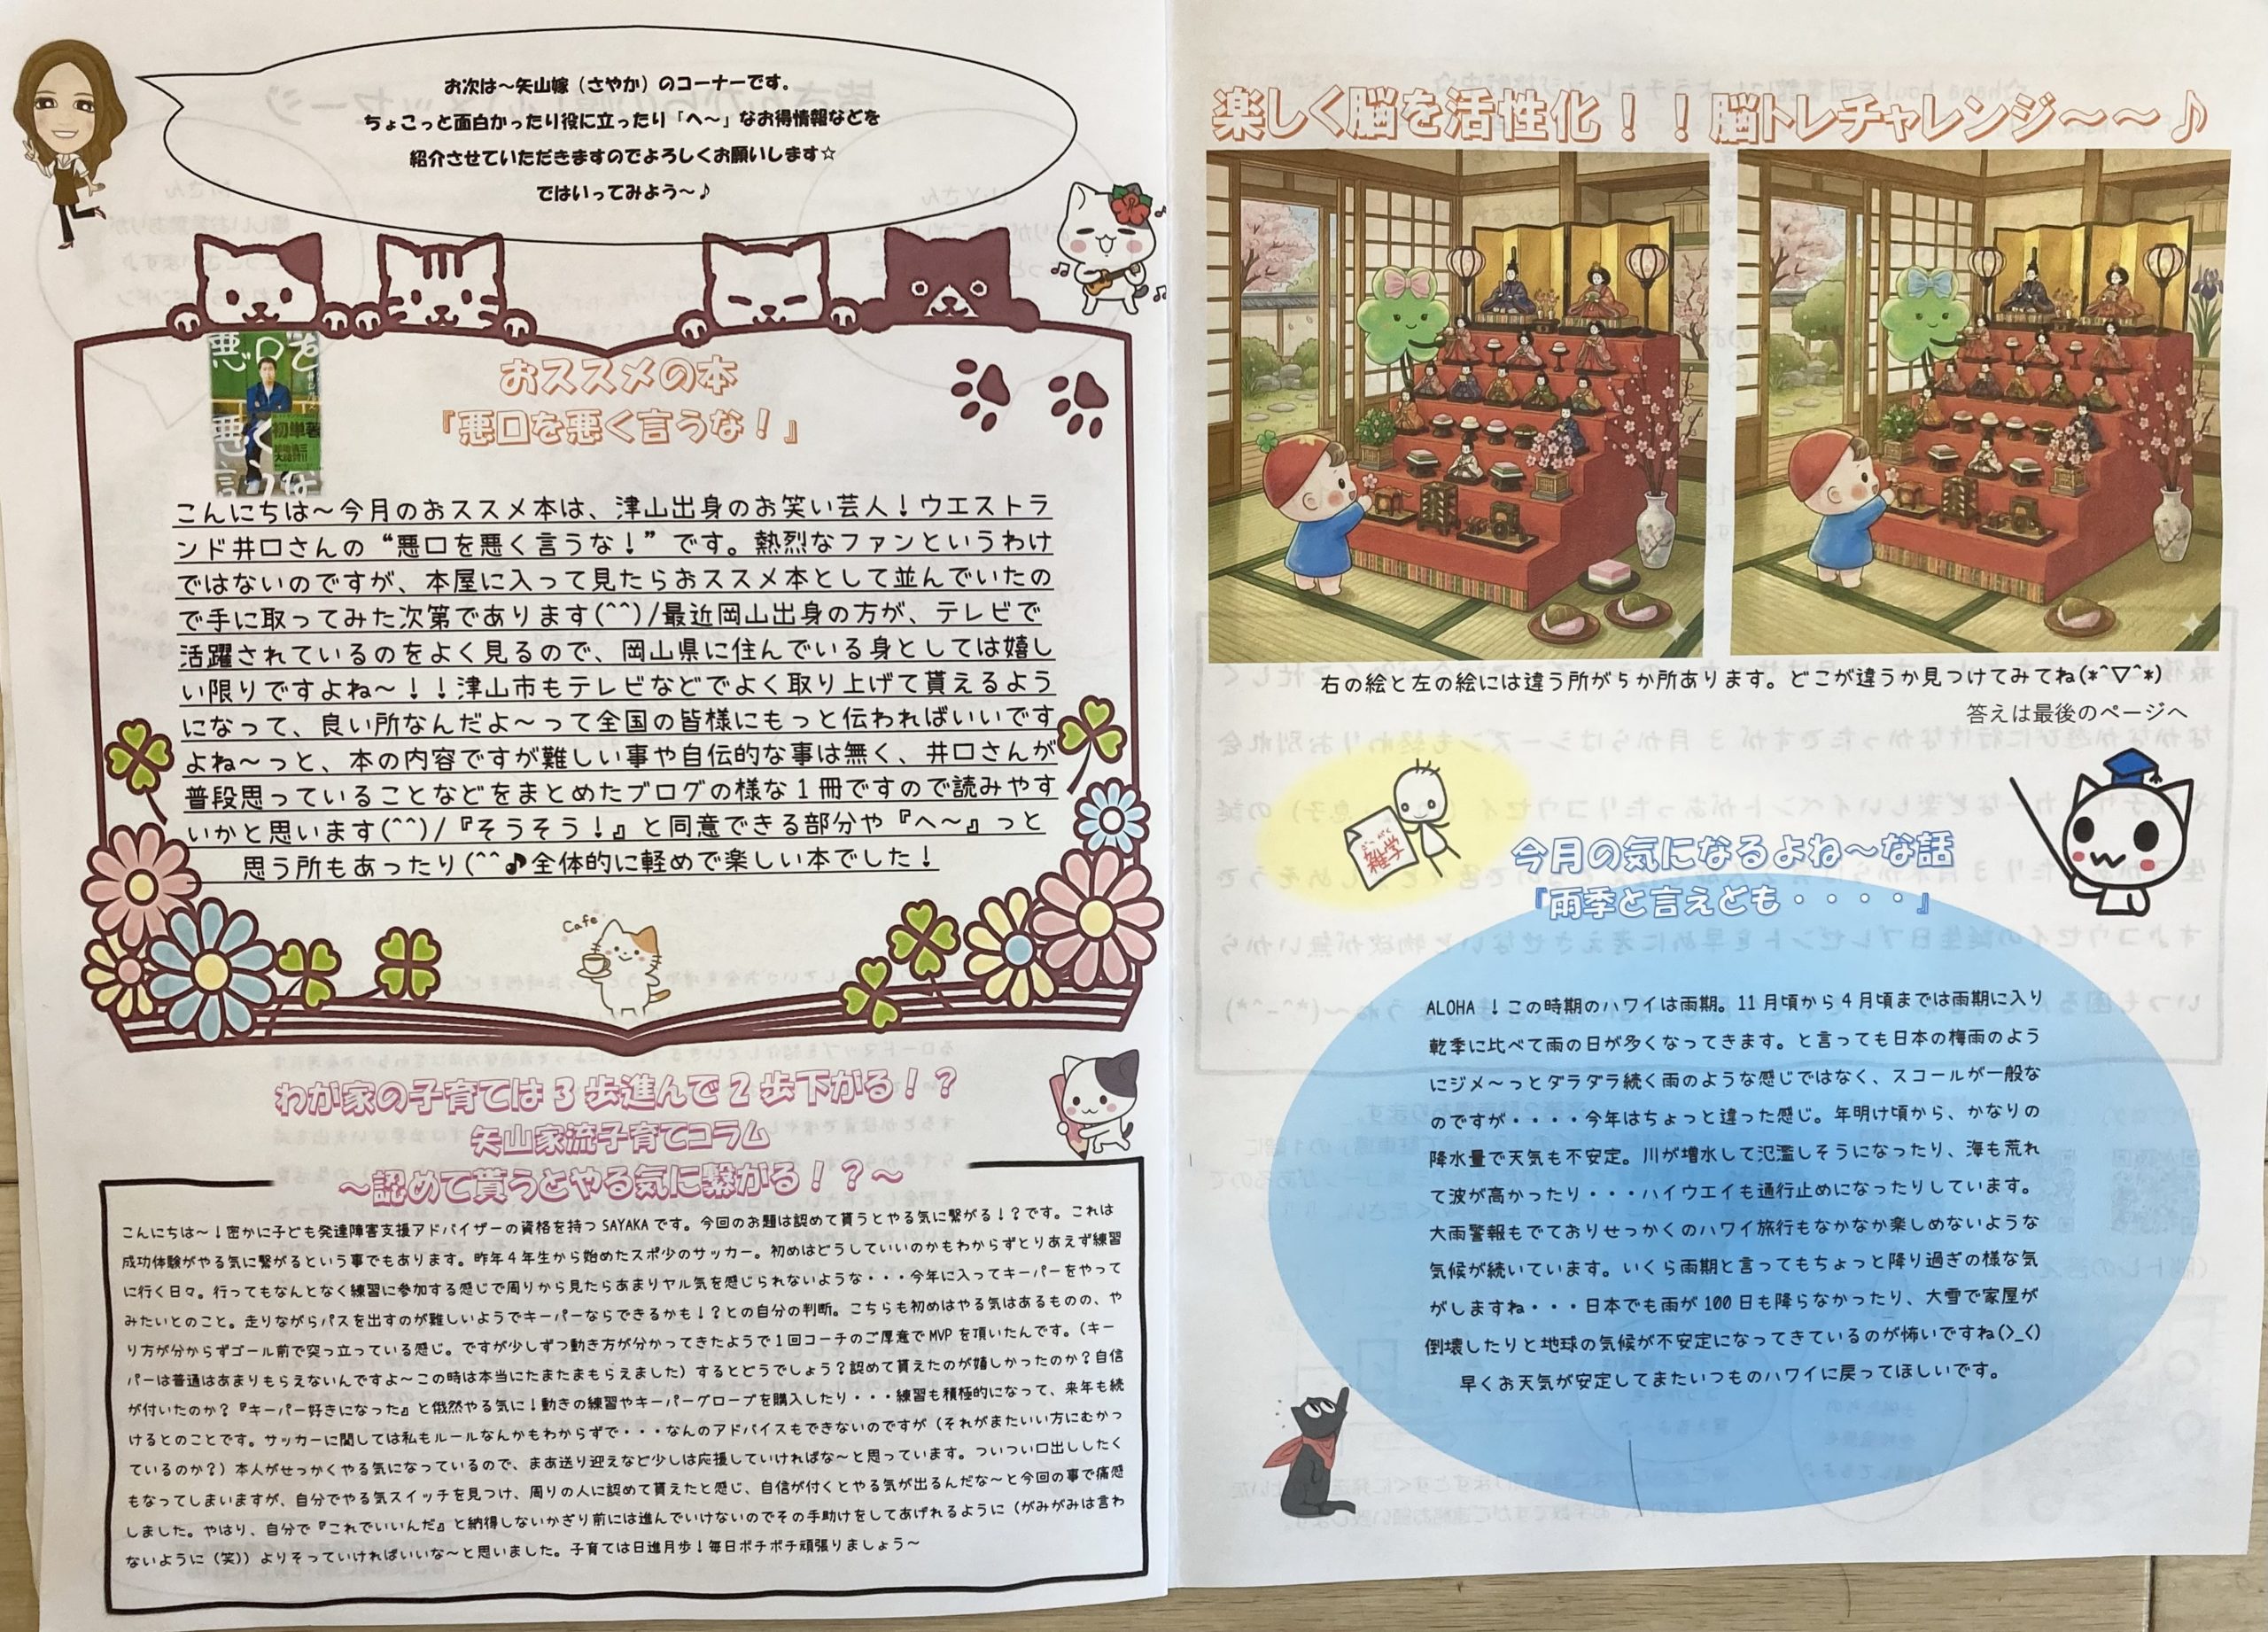 お次は～矢山嫁（さやか）のコーナーです。
ちょこっと面白かったり役に立ったり「へ～」なお得情報などを
紹介させていただきますのでよろしくお願いします☆
ではいってみよう～♪
悪口を
悪く
言うな
初単著
おススメの本
『悪口を悪く言うな！』
こんにちは～今月のおススメ本は、津山出身のお笑い芸人！ウエストラ
ンド井口さんの“悪口を悪く言うな！”です。熱烈なファンというわけ
ではないのですが、本屋に入って見たらおススメ本として並んでいたの
で手に取ってみた次第であります(^^)/最近岡山出身の方が、テレビで
活躍されているのをよく見るので、岡山県に住んでいる身としては嬉し
い限りですよね～！！津山市もテレビなどでよく取り上げて貰えるよう
になって、良い所なんだよ～って全国の皆様にもっと伝わればいいです
よね～っと、本の内容ですが難しい事や自伝的な事は無く、井口さんが
普段思っていることなどをまとめたブログの様な１冊ですので読みやす
いかと思います(^^)/『そうそう！』と同意できる部分や『へ～』っと
思う所もあったり(^^♪全体的に軽めで楽しい本でした！
Cafe
わが家の子育ては３歩進んで２歩下がる！？
矢山家流子育てコラム
～認めて貰うとやる気に繋がる！？～
こんにちは～！密かに子ども発達障害支援アドバイザーの資格を持つSAYAKAです。今回のお題は認めて貰うとやる気に繋がる！？です。これは
成功体験がやる気に繋がるという事でもあります。昨年４年生から始めたスポ少のサッカー。初めはどうしていいのかもわからずとりあえず練習
に行く日々。行ってもなんとなく練習に参加する感じで周りから見たらあまりヤル気を感じられないような・・・今年に入ってキーパーをやって
みたいとのこと。走りながらパスを出すのが難しいようでキーパーならできるかも！？との自分の判断。こちらも初めはやる気はあるものの、や
り方が分からずゴール前で突っ立っている感じ。ですが少しずつ動き方が分かってきたようで１回コーチのご厚意でMVPを頂いたんです。（キー
パーは普通はあまりもらえないんですよ～この時は本当にたまたまもらえました）するとどうでしょう？認めて貰えたのが嬉しかったのか？自信
が付いたのか？『キーパー好きになった』と俄然やる気に！動きの練習やキーパーグローブを購入したり・・・練習も積極的になって、来年も続
けるとのことです。サッカーに関しては私もルールなんかもわからずで・・・なんのアドバイスもできないのですが（それがまたいい方にむかっ
ているのか？）本人がせっかくやる気になっているので、まあ送り迎えなど少しは応援していければな～と思っています。ついつい口出ししたく
もなってしまいますが、自分でやる気スイッチを見つけ、周りの人に認めて貰えたと感じ、自信が付くとやる気が出るんだな～と今回の事で痛感
しました。やはり、自分で『これでいいんだ』と納得しないかぎり前には進んでいけないのでその手助けをしてあげれるように（がみがみは言わ
ないように（笑））よりそっていければいいな～と思いました。子育ては日進月歩！毎日ボチボチ頑張りましょう～
楽しく脳を活性化！！脳トレチャレンジ～～♪
右の絵と左の絵には違う所が５か所あります。どこが違うか見つけてみてね(*^▽^*)
答えは最後のページへ
雑学
今月の気になるよね～な話
『雨季と言えども・・・・』
ALOHA！この時期のハワイは雨期。11月頃から４月頃までは雨期に入り
乾季に比べて雨の日が多くなってきます。と言っても日本の梅雨のよう
にジメ～っとダラダラ続く雨のような感じではなく、スコールが一般な
のですが・・・・今年はちょっと違った感じ。年明け頃から、かなりの
降水量で天気も不安定。川が増水して氾濫しそうになったり、海も荒れ
て波が高かったり・・・ハイウエイも通行止めになったりしています。
大雨警報もでておりせっかくのハワイ旅行もなかなか楽しめないような
気候が続いています。いくら雨期と言ってもちょっと降り過ぎの様な気
がしますね・・・日本でも雨が100日も降らなかったり、大雪で家屋が
倒壊したりと地球の気候が不安定になってきているのが怖いですね(>_<)
早くお天気が安定してまたいつものハワイに戻ってほしいです。